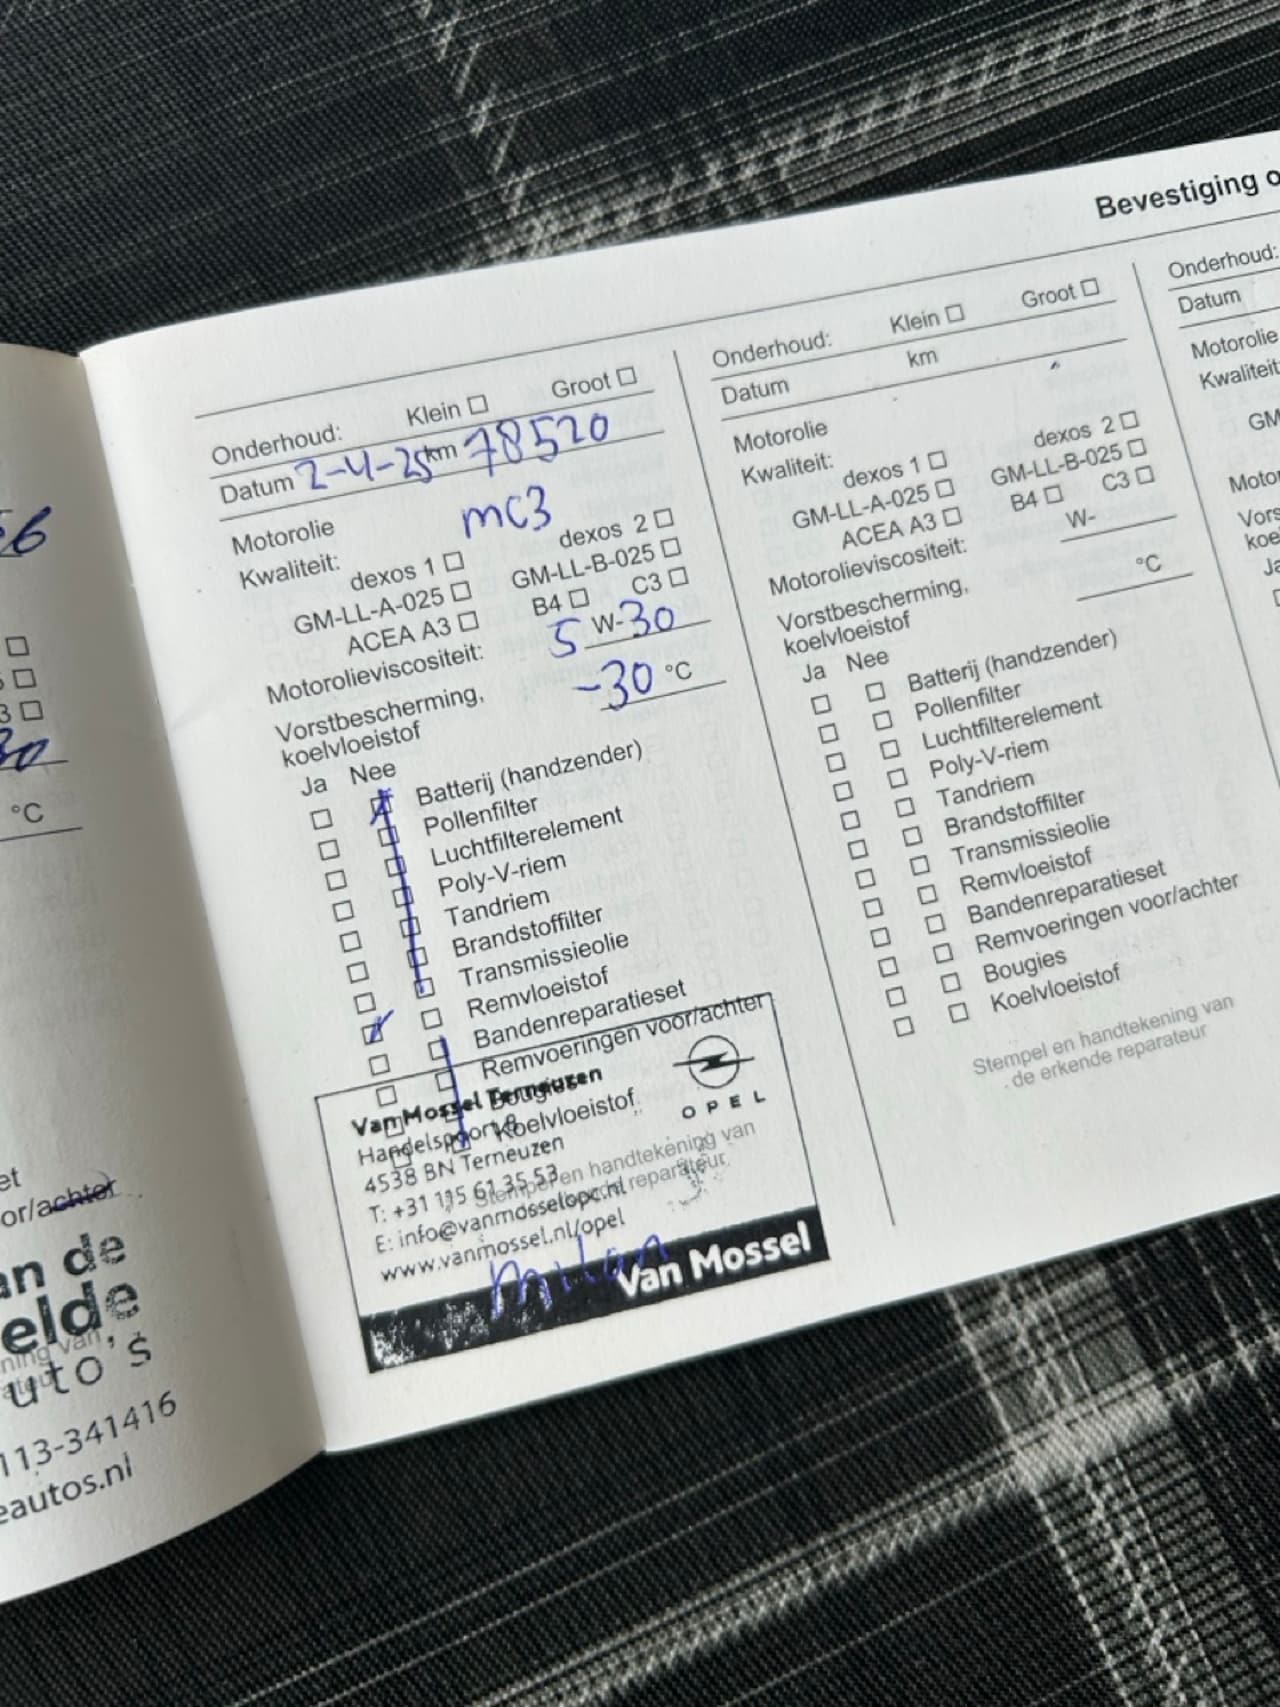 56
3
30
°C
et
or/achter
an de
elde
ning van
uto's
113-341416
eautos.nl
Onderhoud: Klein Groot
Datum 2-4-25 km 78520
Motorolie mc3
Kwaliteit:
dexos 1 dexos 2
GM-LL-A-025 GM-LL-B-025
ACEA A3 B4 C3
Motorolieviscositeit: 5 W-30
Vorstbescherming,
koelvloeistof -30 °C
Ja Nee
Batterij (handzender)
Pollenfilter
Luchtfilterelement
Poly-V-riem
Tandriem
Brandstoffilter
Transmissieolie
Remvloeistof
Bandenreparatieset
Remvoeringen voor/achter
Bougies
Koelvloeistof
Stempel en handtekening van
de erkende reparateur
Van Mossel Terneuzen
Handelspoort 8
4538 BN Terneuzen
T: +31 115 61 35 53
E: info@vanmosselopc.nl
www.vanmossel.nl/opel
OPEL
milan
Van Mossel
Bevestiging o
Onderhoud: Klein Groot
Datum km
Motorolie
Kwaliteit:
dexos 1 dexos 2
GM-LL-A-025 GM-LL-B-025
ACEA A3 B4 C3
Motorolieviscositeit: W-
Vorstbescherming,
koelvloeistof °C
Ja Nee
Batterij (handzender)
Pollenfilter
Luchtfilterelement
Poly-V-riem
Tandriem
Brandstoffilter
Transmissieolie
Remvloeistof
Bandenreparatieset
Remvoeringen voor/achter
Bougies
Koelvloeistof
Stempel en handtekening van
de erkende reparateur
Onderhoud:
Datum
Motorolie
Kwaliteit
GM
Motor
Vors
koe
Ja